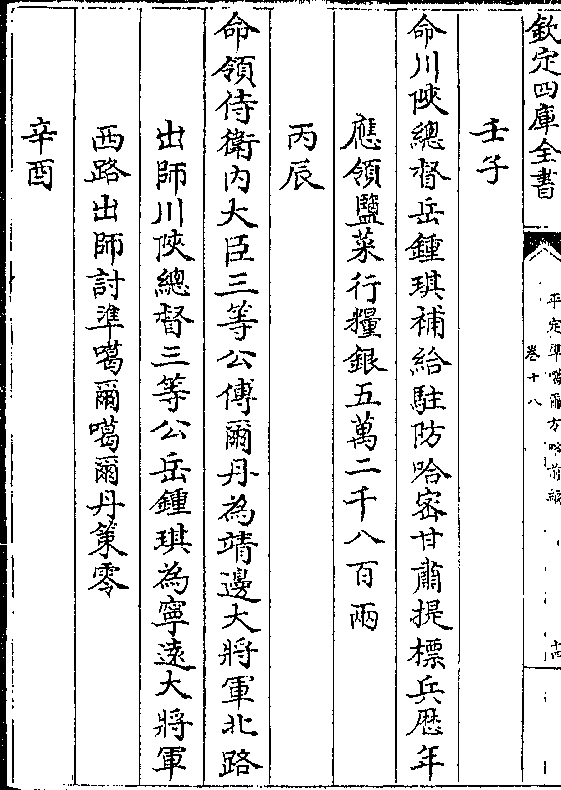 欽定四庫全書
平定準噶爾方略前編
卷十八
十四
壬子
命川陜總督岳鍾琪補給駐防哈密甘肅提標兵歴年
應領鹽菜行糧銀五萬二千八百兩
丙辰
命領侍衛内大臣三等公傅爾丹為靖邊大將軍北路
出師川陜總督三等公岳鍾琪為寧遠大將軍
西路出師討準噶爾噶爾丹策零
辛酉